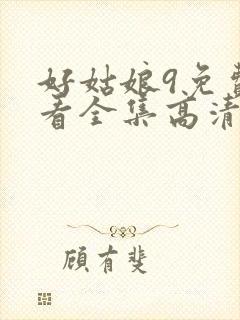 好姑娘9免费
看全集高清
顾有斐